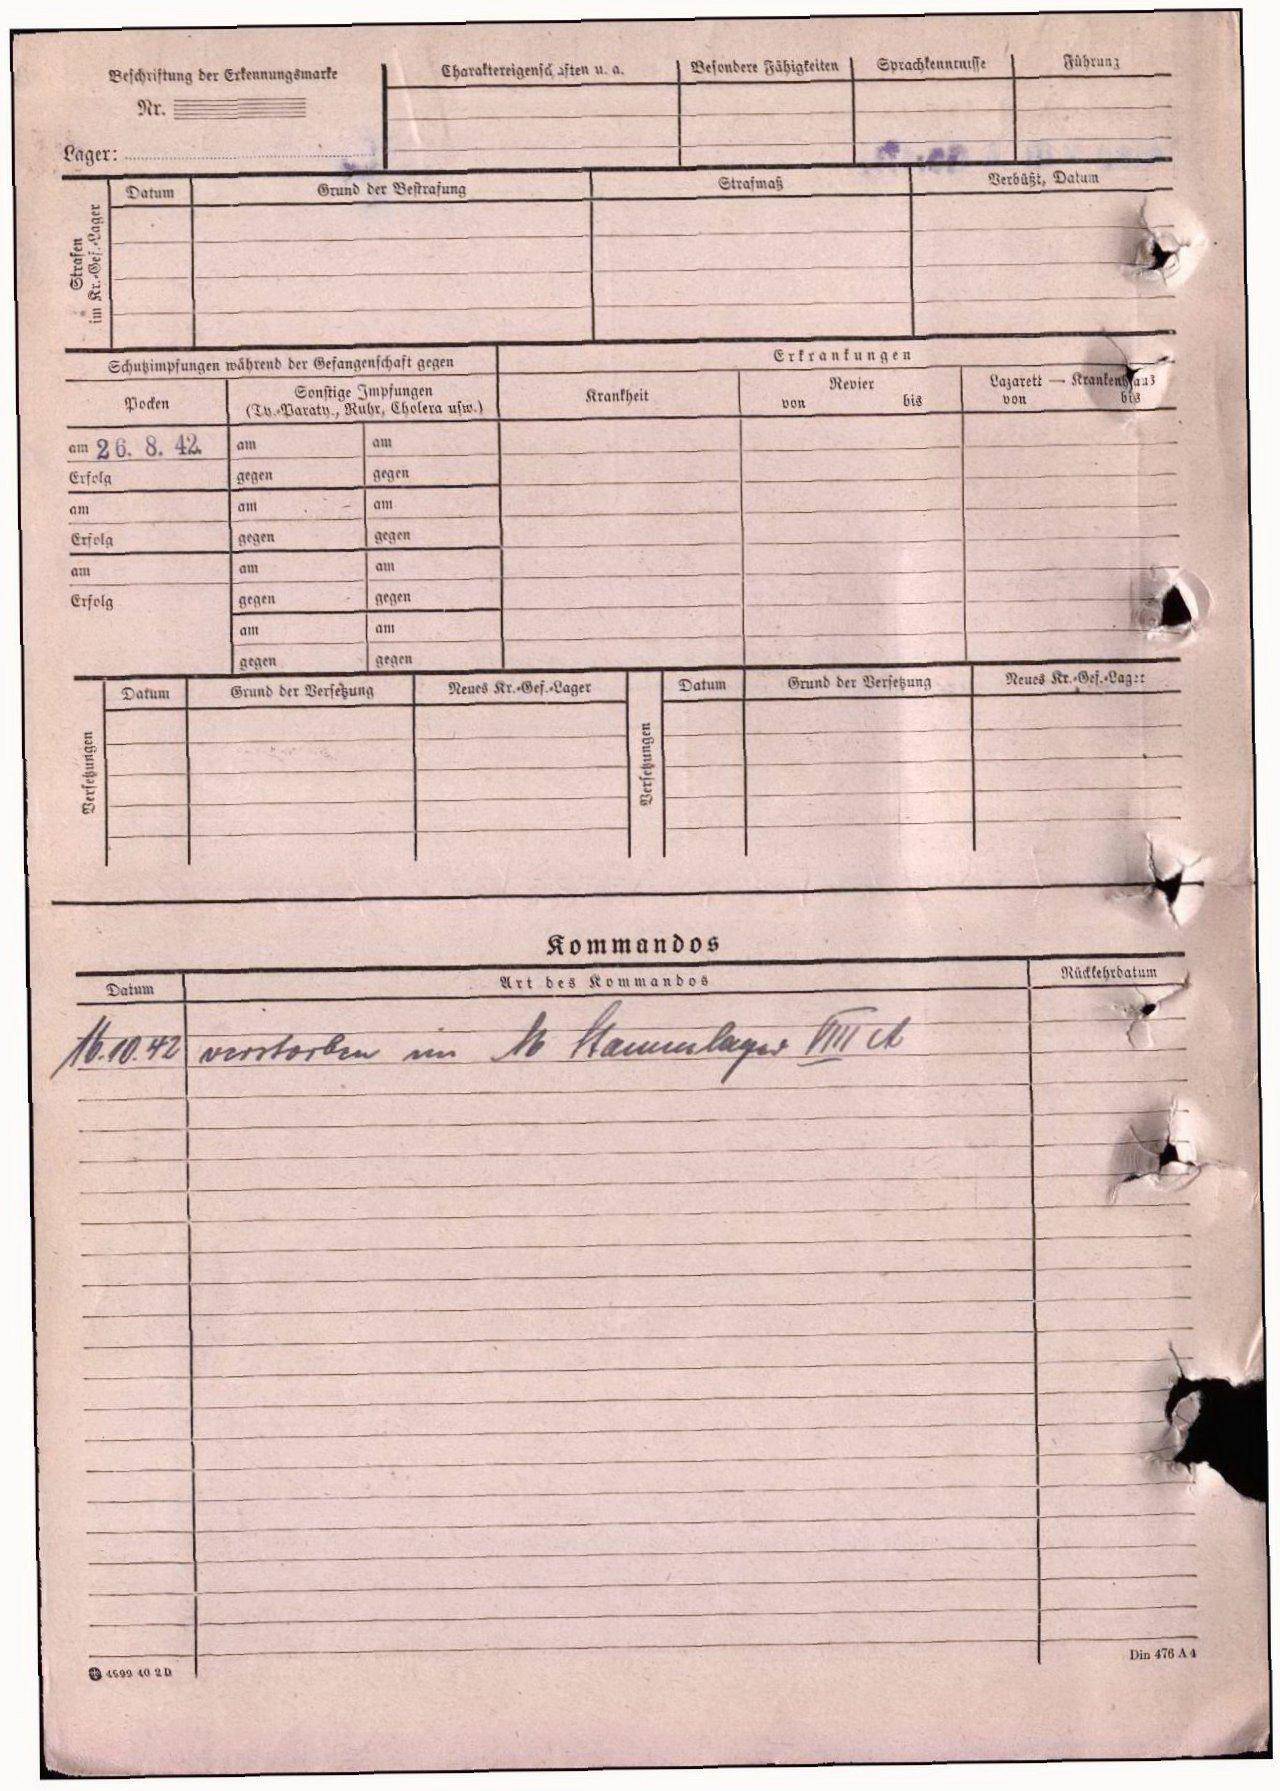 Beschriftung der Erkennungsmarke
Nr.
Lager:
Charaktereigenschaften u. a.
Besondere Fähigkeiten
Sprachkenntnisse
Führung
Strafen im Kr.-Gef.-Lager
Datum
Grund der Bestrafung
Strafmaß
Verbüßt, Datum
Schutzimpfungen während der Gefangenschaft gegen
Erkrankungen
Pocken
Sonstige Impfungen
(Ty.-Paraty., Ruhr, Cholera usw.)
Krankheit
Revier
von bis
Lazarett — Krankenhaus
von bis
am 26. 8. 42. am am
Erfolg gegen gegen
am am am
Erfolg gegen gegen
am am am
Erfolg gegen gegen
am am
gegen gegen
Versetzungen
Datum
Grund der Versetzung
Neues Kr.-Gef.-Lager
Versetzungen
Datum
Grund der Versetzung
Neues Kr.-Gef.-Lager
Kommandos
Datum
Art des Kommandos
Rückkehrdatum
16.10.42 verstorben im Stammlager VIII A
4599 40 2 D
Din 476 A 4